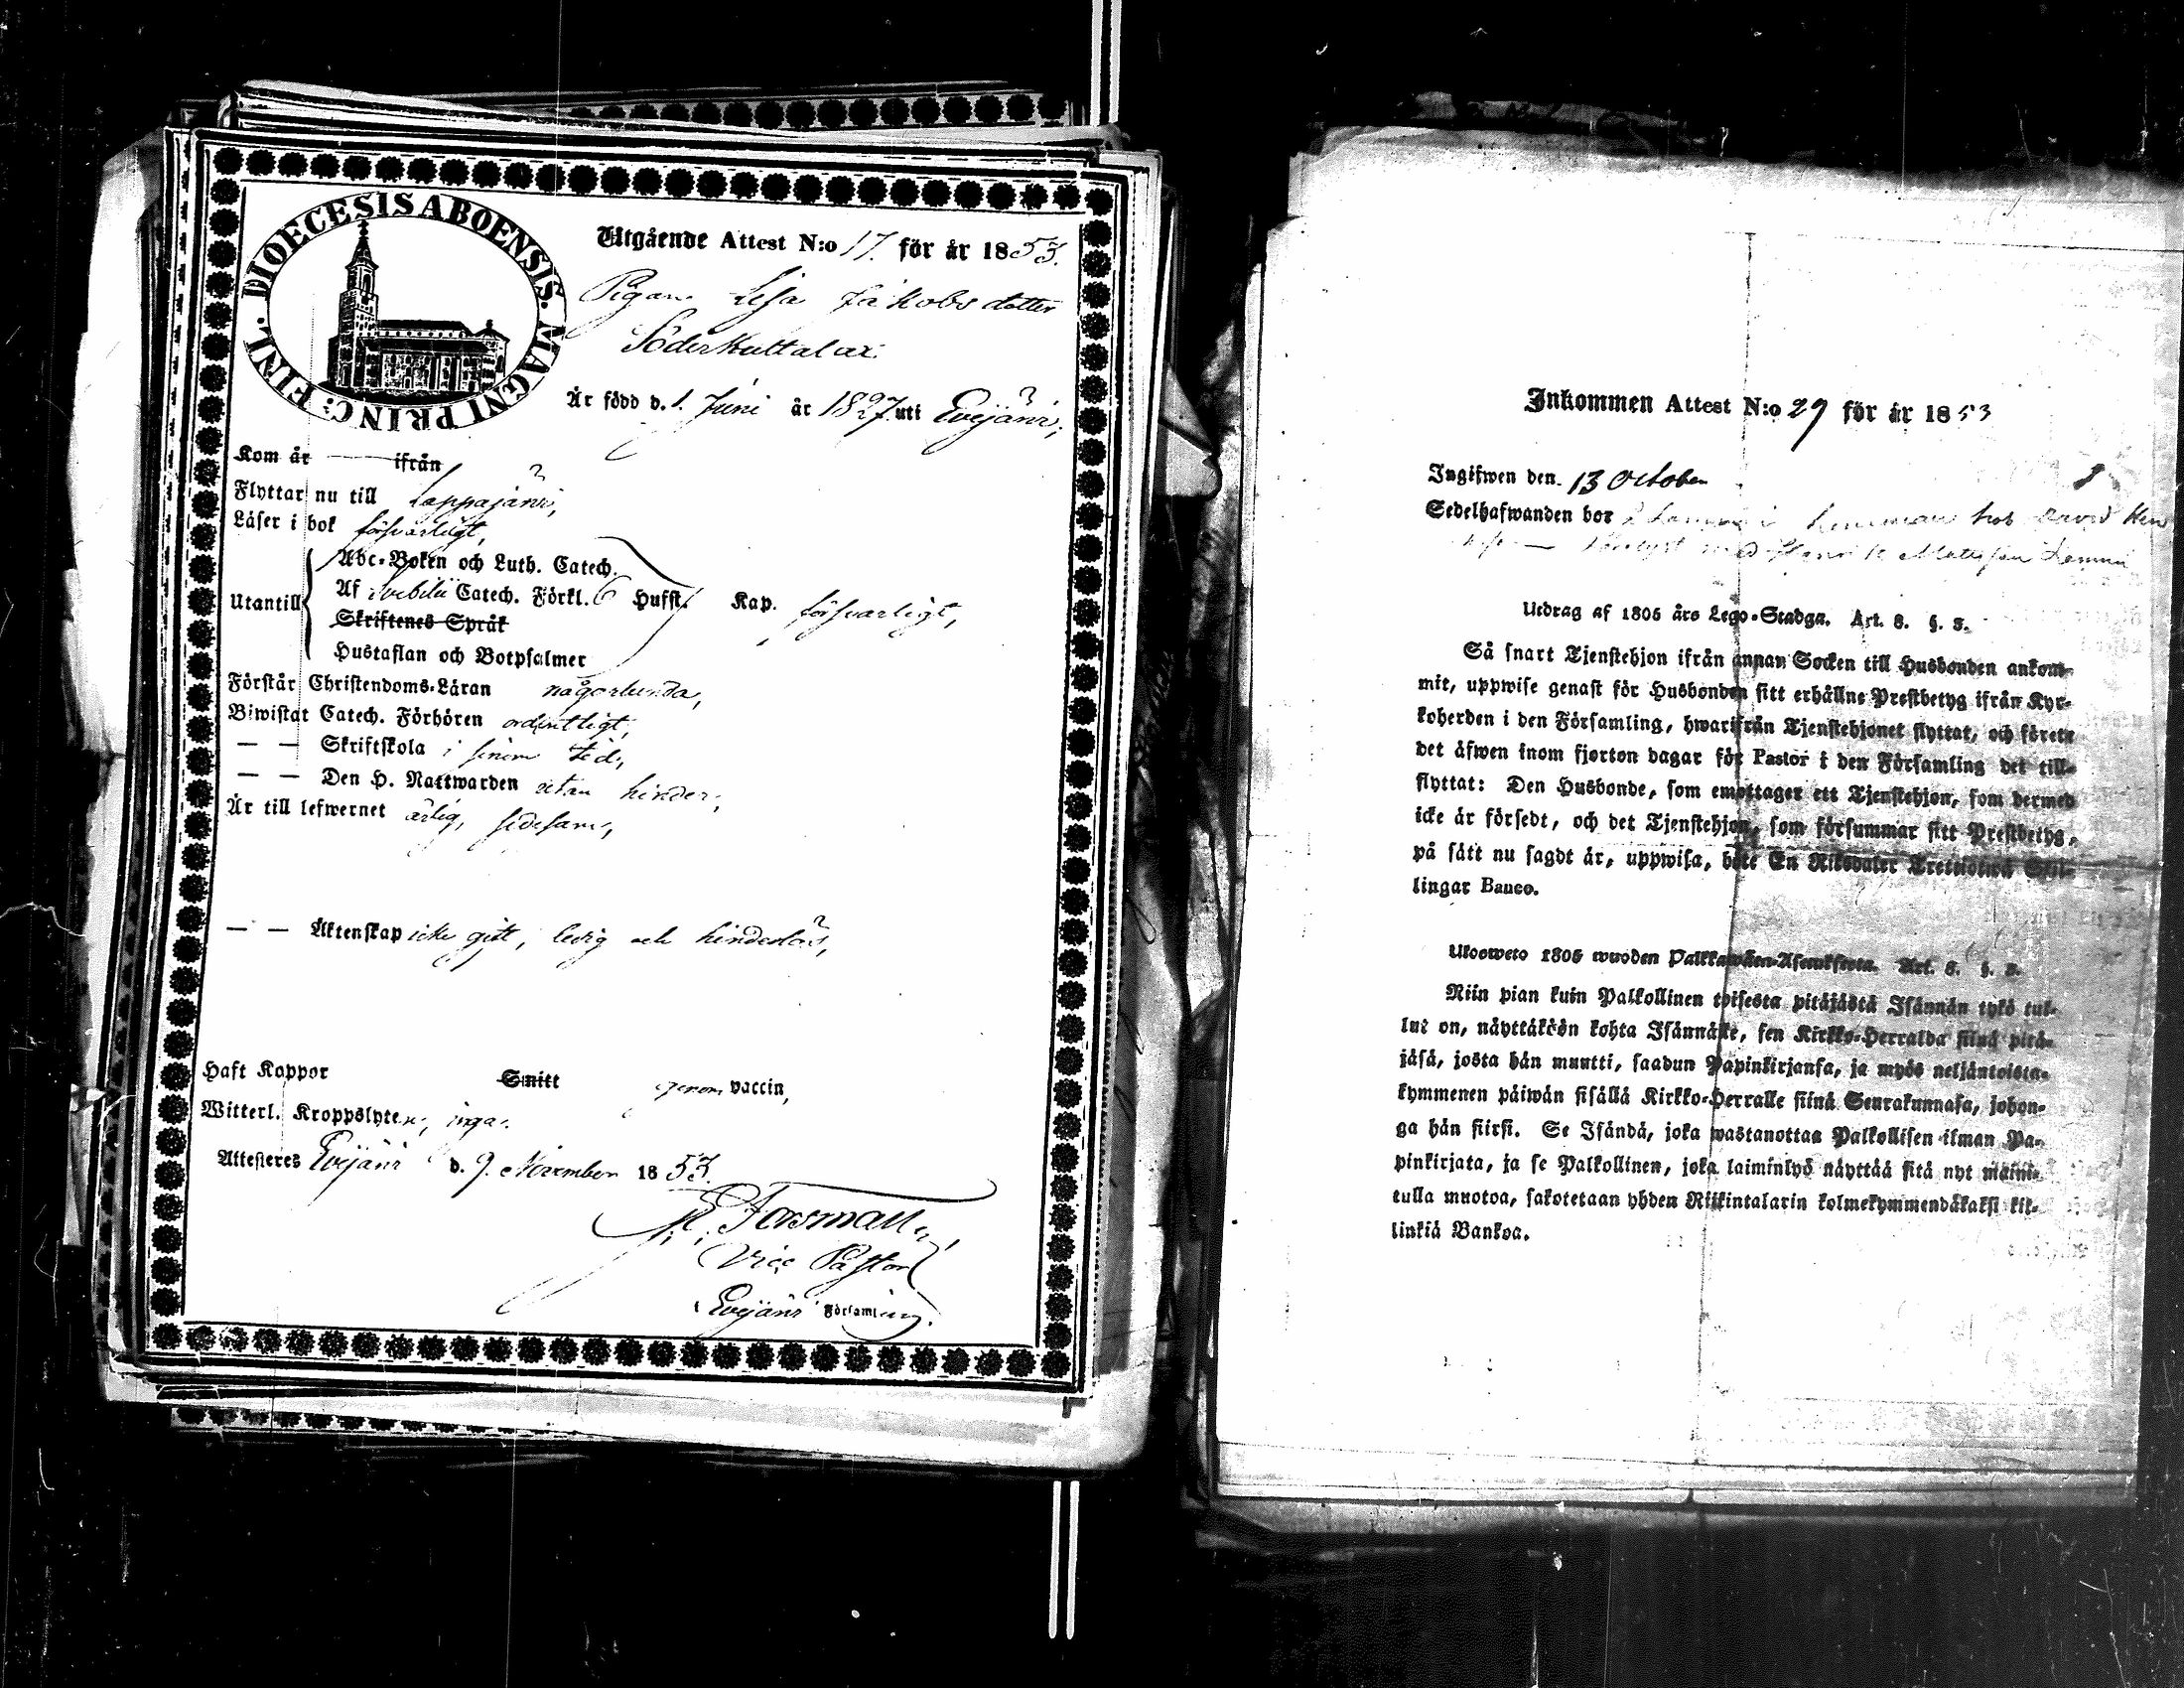 DIOECESIS ABOENSIS. MAGNI PRINC: FINL.
Utgående Attest N:o 17. för år 1853.
Pigan Lisa Jakobsdotter
Söderkultalax
Är född d. 1. Juni år 1827 uti Evijärvi,
Kom år — ifrån
Flyttar nu till Lappajärvi,
Läser i bok försvarligt,
Abc-Boken och Luth. Catech.
Utantill Af Svebilii Catech. Förkl. 6 Hufst. Kap. försvarligt,
Skriftenes Språk
Hustaflan och Botpsalmer
Förstår Christendoms-Läran någorlunda,
Biwistat Catech. Förhören ordentligt,
— — Skriftskola i sinom tid,
— — Den H. Nattwarden utan hinder,
Är till lefwernet ärlig, sedesam,
— — Äktenskap icke gift, ledig och hinderlös,
Haft Koppor Smitt genom vaccin,
Witterl. Kroppslyten, inga.
Attesteres Evijärvi d. 9. November 1853.
Forsman
Vice Pastor
Evijärvi Församling.
Inkommen Attest N:o 29 för år 1853
Ingifwen den 13 October
Sedelhafwanden bor hos David
Henrik Mattsson
Utdrag af 1805 års Lego-Stadga. Art. 8. §. 3.
Så snart Tjenstehjon ifrån annan Socken till Husbonden ankom-
mit, uppwise genast för Husbonden sitt erhållne Prestbetyg ifrån Kyr-
koherden i den Församling, hwarifrån Tjenstehjonet flyttat, och förete
det äfwen inom fjorton dagar för Pastor i den Församling det till-
flyttat: Den Husbonde, som emottager ett Tjenstehjon, som dermed
icke är försedt, och det Tjenstehjon, som försummar sitt Prestbetyg,
på sätt nu sagdt är, uppwisa, böte En Riksdaler Trettiotwå Skil-
lingar Banco.
Ulosweto 1805 wuoden Palkkawäen-Asetuksesta. Art. 8. §. 3.
Niin pian kuin Palkollinen toisesta pitäjästä Isännän tykö tul-
lut on, näyttäköön kohta Isännälle, sen Kirkko-Herralda siinä pitä-
jäsä, josta hän muutti, saadun Papinkirjansa, ja myös neljäntoista-
kymmenen päiwän sisällä Kirkko-Herralle siinä Seurakunnasa, johon-
ga hän siirsi. Se Isändä, joka wastanottaa Palkollisen ilman Pa-
pinkirjata, ja se Palkollinen, joka laiminlyö näyttää sitä nyt maini-
tulla muotoa, sakotetaan yhden Riikintalarin kolmekymmendäkaksi kil-
linkiä Bankoa.